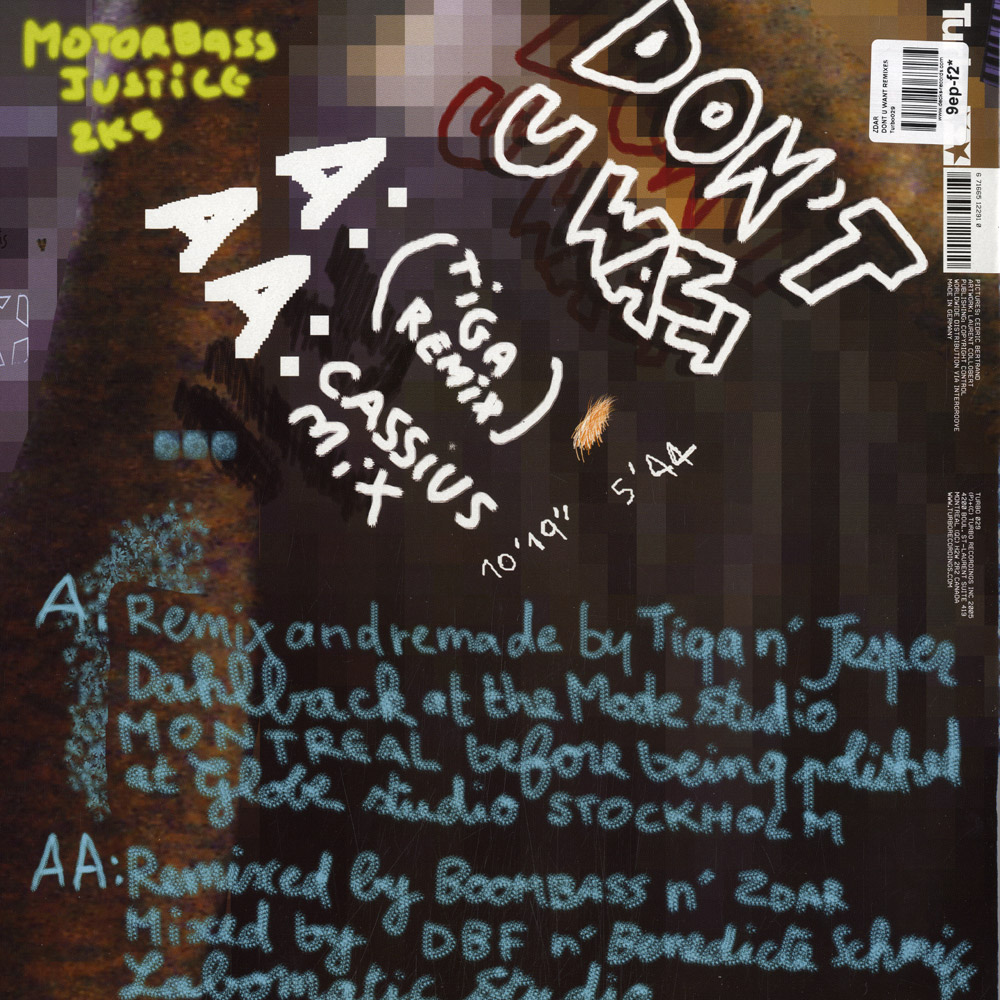 MOTORBASS
JUSTICE
2K5
DON'T
U WANT
A. (TIGA
REMIX)
AA. CASSIUS
MIX
10'19"
5'44
A. Remix and remade by Tiga n' Jesper
Dahlback at the Mode Studio
MONTREAL before being polished
at globe studio STOCKHOLM
AA: Remixed by BOOMBASS n' ZDAR
Mixed by DBF n' Benedicte Schmitt
Labomatic Studio
ZDAR
DONT U WANT REMIXES
Turbo029
9ep-f2*
6 71665 12291 0
PICTURES: CEDRIC BERTRAND
ARTWORK: LAURENT COLLOBERT
PUBLISHING: COPYRIGHT CONTROL
WORLDWIDE DISTRIBUTION VIA INTERGROOVE
MADE IN GERMANY
TURBO 029
(P)+(C) TURBO RECORDINGS INC 2005
4200 BOUL. ST-LAURENT SUITE 419
MONTREAL (QC) H2W 2R2 CANADA
WWW.TURBORECORDINGS.COM